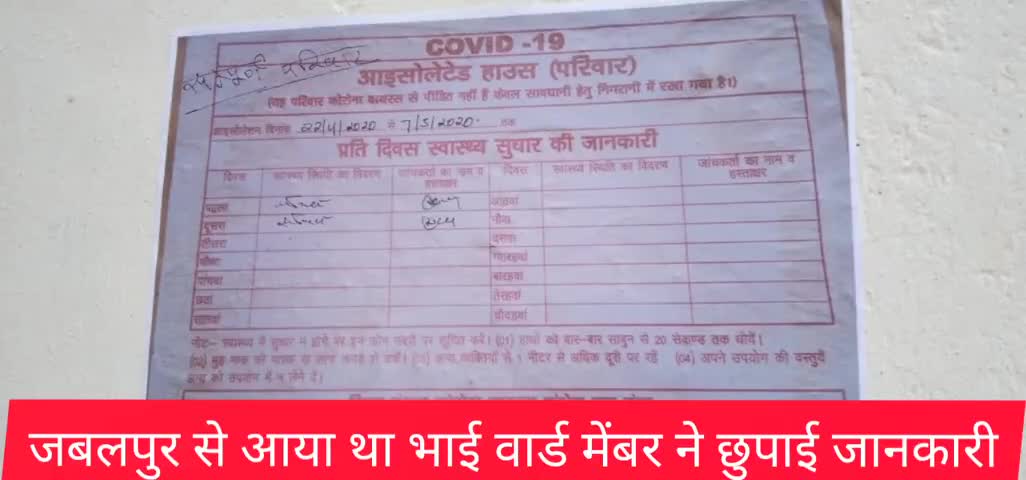 COVID -19
आइसोलेटेड हाउस (परिवार)
(यह परिवार कोरोना वायरस से पीड़ित नहीं है केवल सावधानी हेतु निगरानी में रखा गया है।)
आइसोलेशन दिनांक 22/4/2020 से 7/5/2020 तक
प्रति दिवस स्वास्थ्य सुधार की जानकारी
दिवस स्वास्थ्य स्थिति का विवरण जांचकर्ता का नाम व हस्ताक्षर दिवस स्वास्थ्य स्थिति का विवरण जांचकर्ता का नाम व हस्ताक्षर
पहला आठवां
दूसरा नौवा
तीसरा दसवा
चौथा ग्यारहवां
पांचवा बारहवां
छठवां तेरहवां
सातवां चौदहवां
नोट:- स्वास्थ्य में सुधार न होने पर इन फोन नंबरों पर सूचित करें। (01) हाथों को बार-बार साबुन से 20 सेकण्ड तक धोयें।
(03) अन्य व्यक्तियों से 1 मीटर से अधिक दूरी पर रहें (04) अपने उपयोग की वस्तुयें
अन्य को उपयोग में न लेने दें।
जबलपुर से आया था भाई वार्ड मेंबर ने छुपाई जानकारी